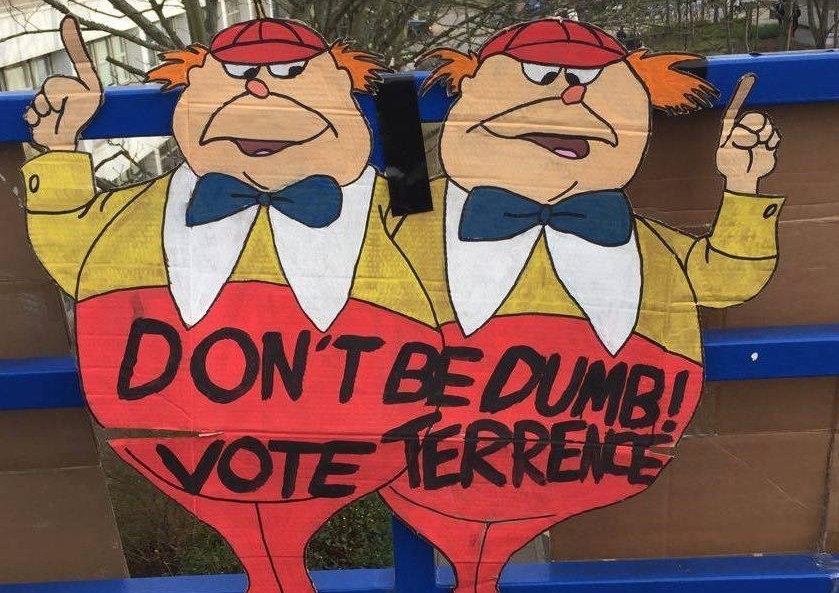 DON'T BE DUMB!
VOTE TERRENCE